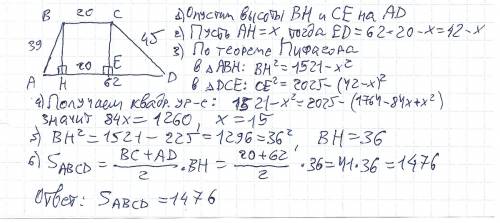 B 20 C
39 45
A H 20 E 62 D
1) Опустим высоты BH и CE на AD
2) Пусть AH=x, тогда ED=62-20-x=42-x
3) По теореме Пифагора
в ΔABH: BH²=1521-x²
в ΔDCE: CE²=2025-(42-x)²
4) Получаем квадр. ур-е: 1521-x²=2025-(1764-84x+x²)
значит 84x=1260, x=15
5) BH²=1521-225=1296=36², BH=36
6) S_ABCD = (BC+AD)/2 · BH = (20+62)/2 · 36=41·36=1476
Ответ: S_ABCD=1476